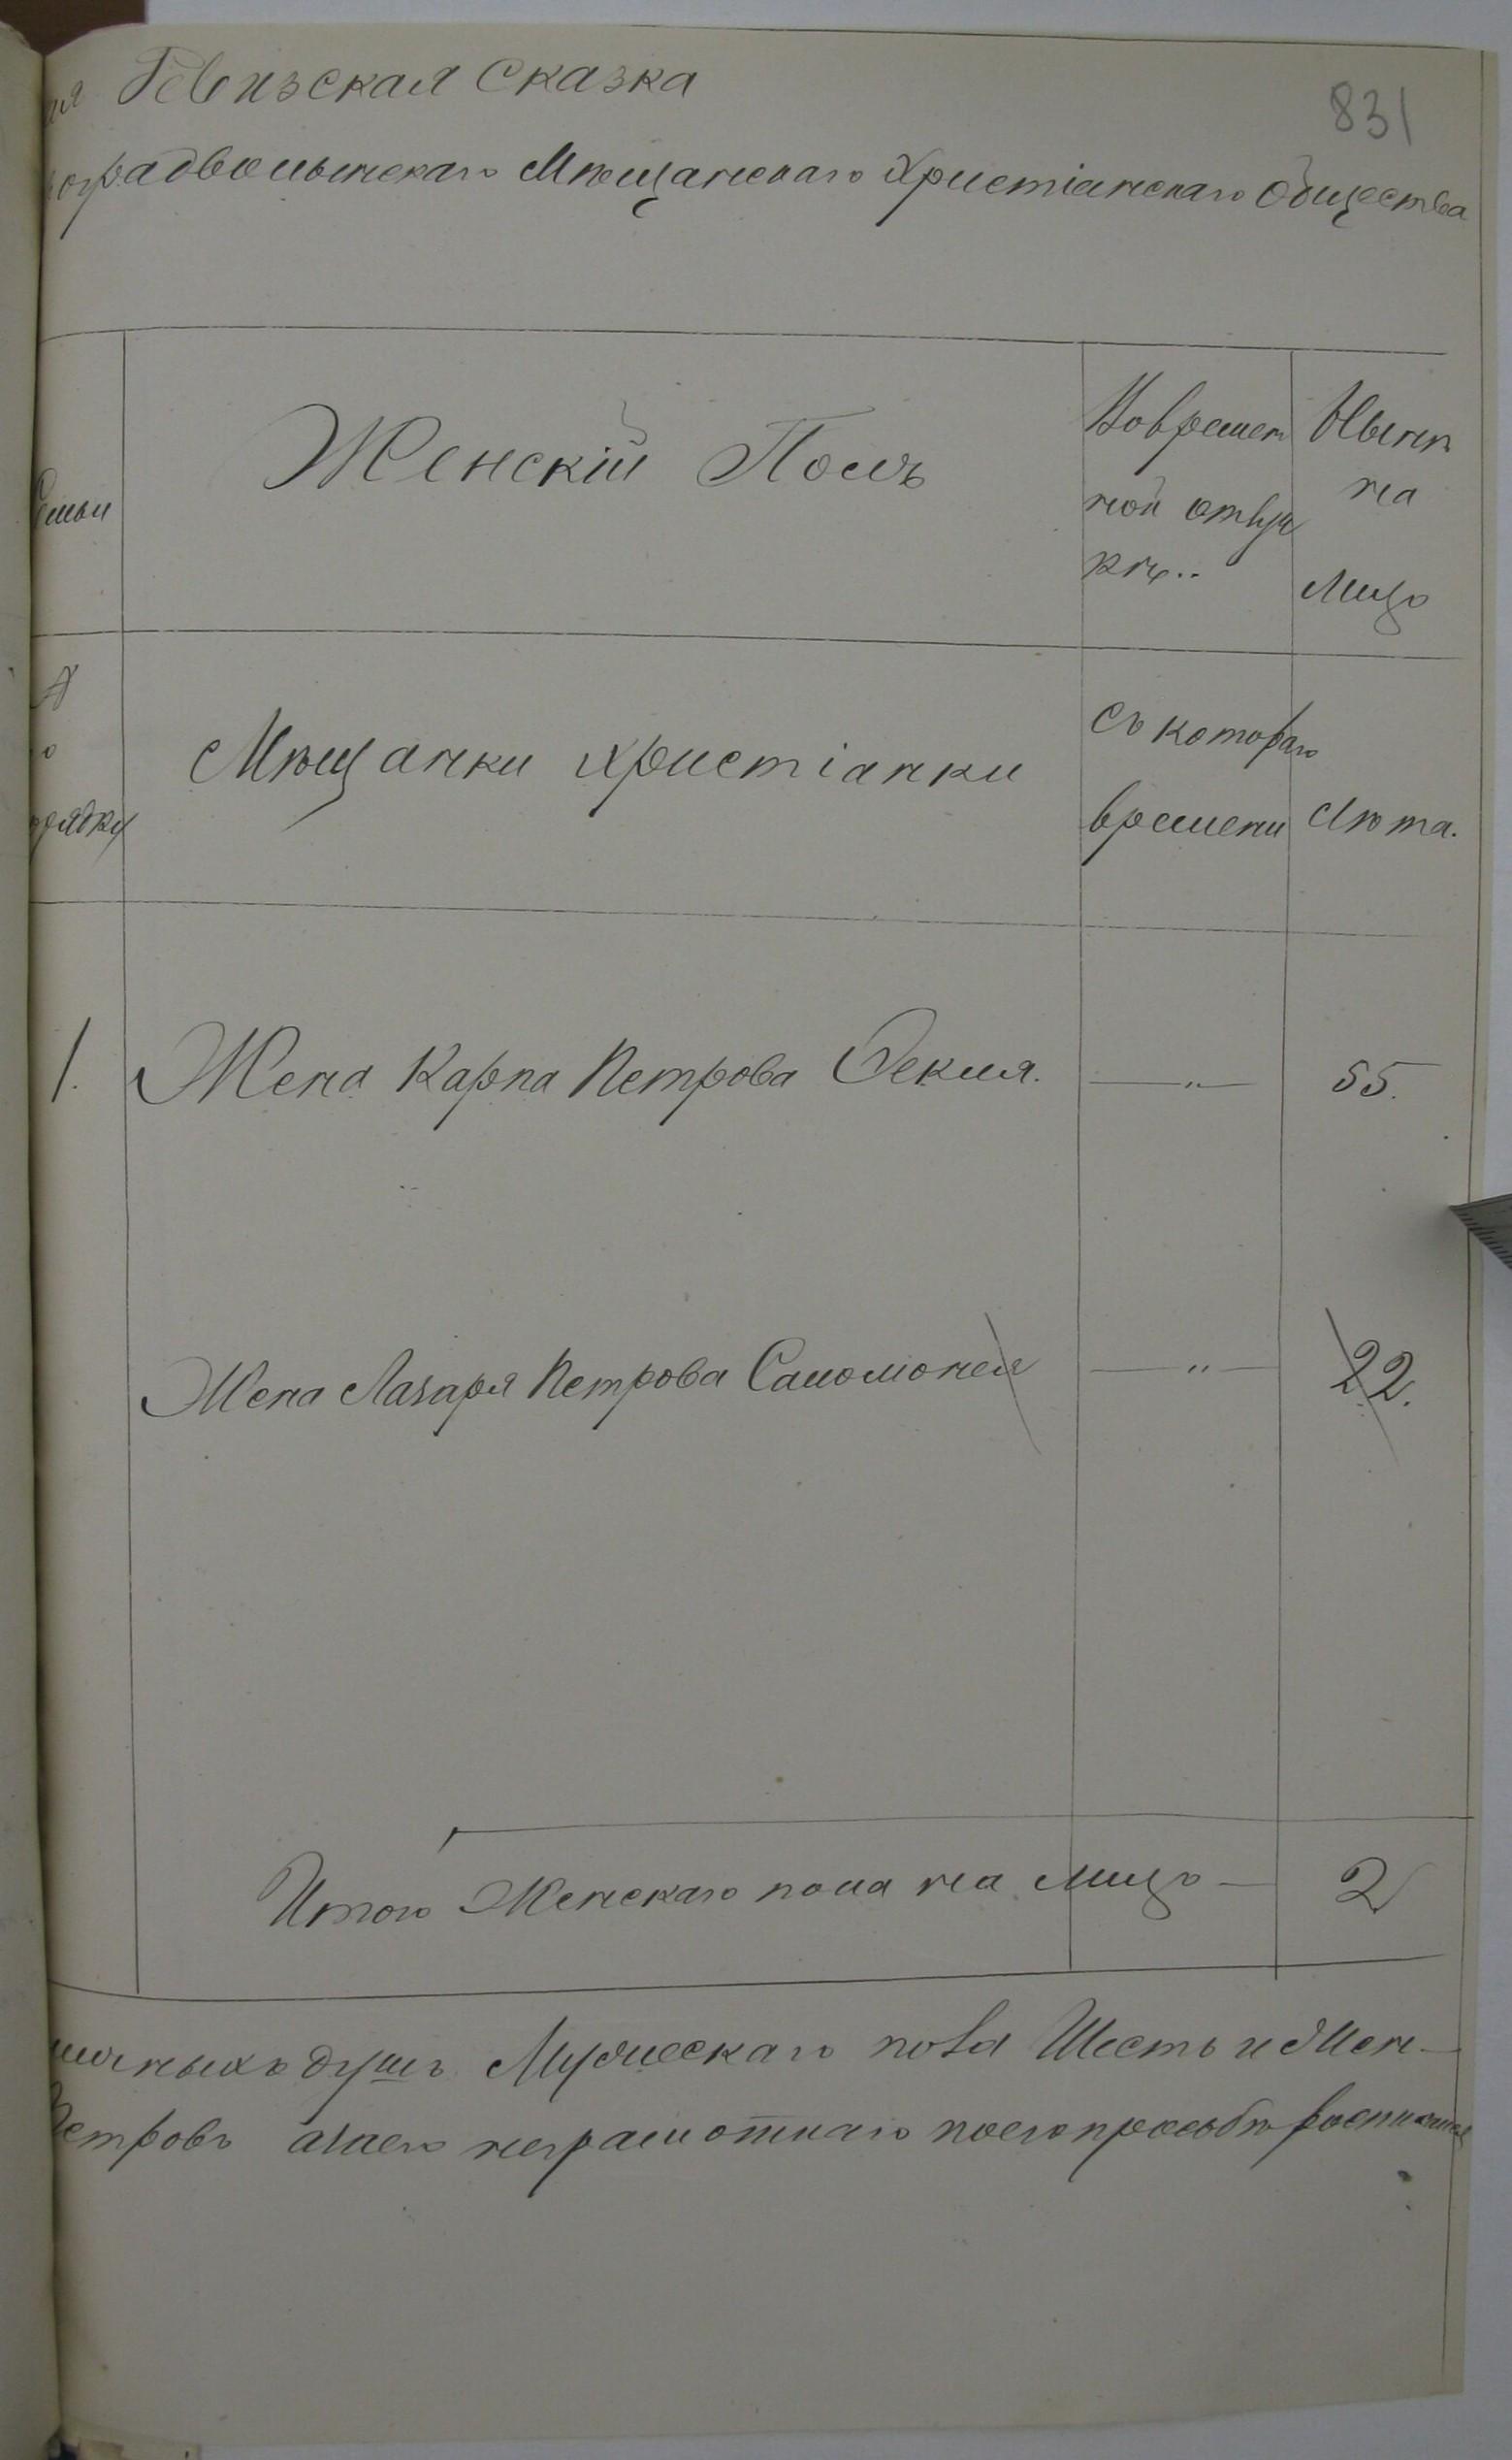 ая Ревизская Сказка
831
воградволынскаго Мѣщанскаго Христіанскаго Общества
Семьи
Женскій Полъ
Вовремен
ной отлу
кѣ..
Нынѣ
на
лицо
№
о
орядку
Мѣщанки Христіанки
Съ котораго
времени
Лѣта.
1. Жена Карпа Петрова Фекля. —„— 55.
Жена Лазаря Петрова Саломонея —„— 22.
Итого Женскаго пола на лицо — 2
личныхъ душъ Мужескаго пола Шесть и Жен—
Петровъ азаего неграмотнаго поегопрозьбѣ росписался